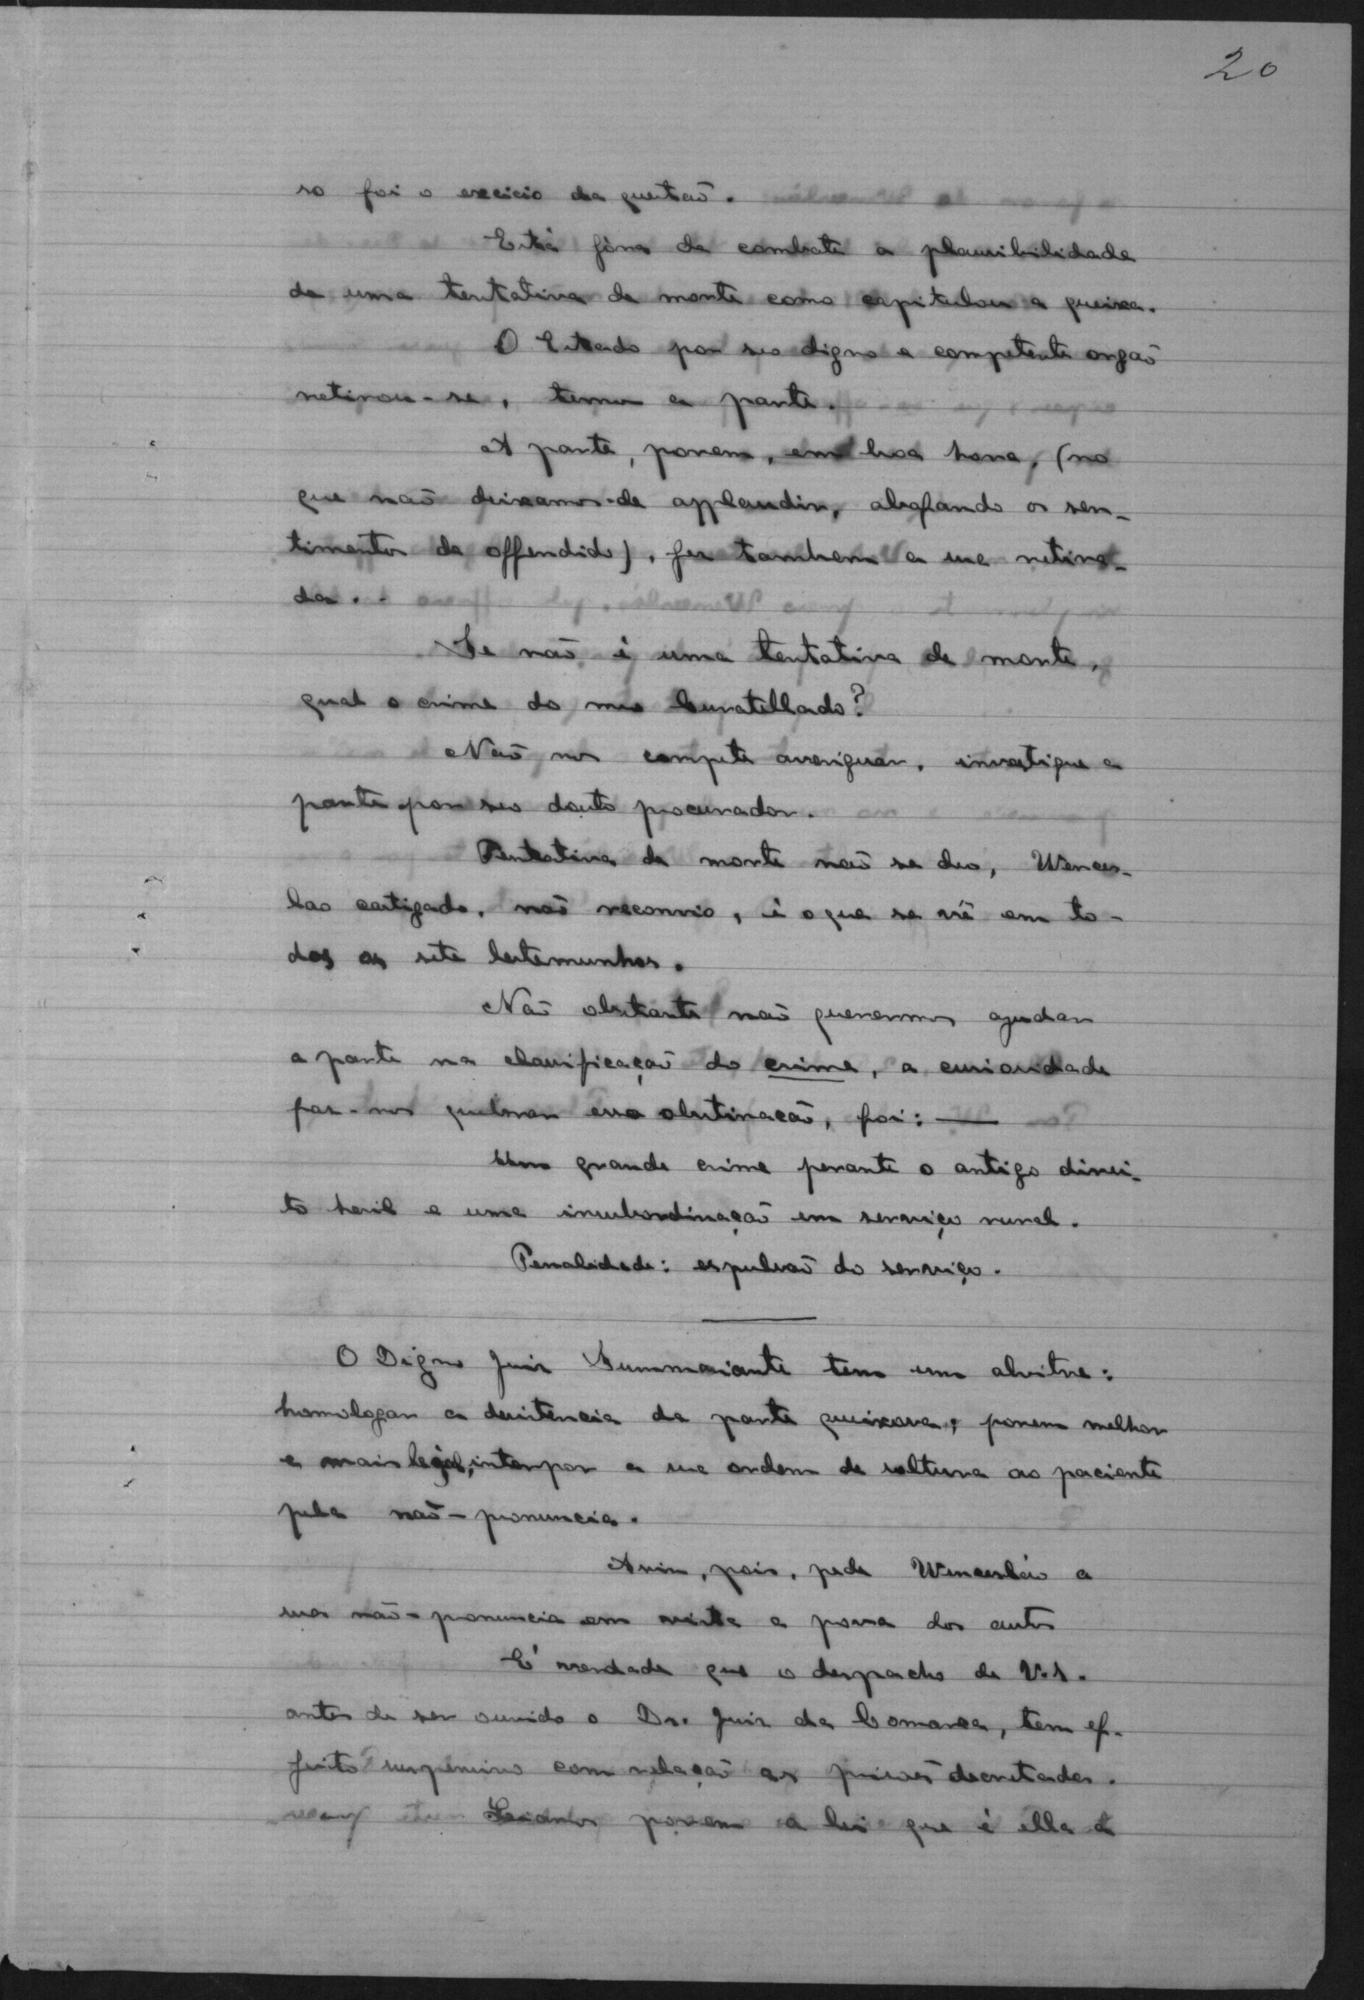 20
so foi o execicio da questaõ.
Está fóra de combate a plausibilidade
de uma tentativa de morte como capitulou a queixa.
O Estado por seo digno e competente orgaõ
retirou-se, temos a parte.
A parte, porem, em boa hora, (no
que naõ deixamos de applaudir, abafando os sen-
timentos de offendido), fez tambem a sua retira-
da.
Se naõ é uma tentativa de morte,
qual o crime do meo Curatellado?
Naõ nos compete averiguar, investigue a
parte por seo douto procurador.
Tentativa de morte naõ se deo, Wences-
lao castigado, naõ reconvio, é o que se vê em to-
das as sete testemunhas.
Naõ obstante naõ querermos ajudar
a parte na classificaçaõ do crime, a curiosidade
faz-nos quebrar essa obstinacaõ, foi: —
Um grande crime perante o antigo direi-
to heril e uma insubordinaçaõ em serviço rural.
Penalidade: espulsaõ do serviço.
O Digno Juiz Summariante tem um alvitre:
homologar a desistencia da parte queixosa; porem melhor
e mais legal, interpor a sua ordem de soltura ao paciente
pela naõ-pronuncia.
Assim, pois, pede Wencesláo a
sua naõ-pronuncia em vista a prova dos autos
E' verdade que o despacho de V.S.
antes de ser ouvido o Dr. Juiz da Comarca, tem ef-
feito suspensivo com relaçaõ as prisoẽs decretadas.
porem a lei que é ella a